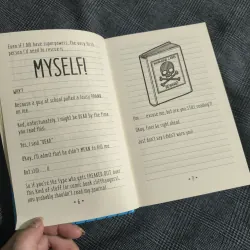 Even if I DO have superpowers, the only
person I'd need to rescue is
MYSELF!
WHY?
Because a guy at school pulled a nasty PRANK
on me.
And, unfortunately, I might be DEAD by the time
you read this.
Yes, I said "DEAD".
Okay, I'll admit that he didn't MEAN to KILL me.
But still . . . !!
So if you're the type who gets FREAKED OUT over
this kind of stuff (or comic book cliffhangers),
you probably shouldn't read my journal . . .
- 6 -
excuse me, but are you STILL reading?!
Okay, fine! Go right ahead.
Just don't say I didn't warn you!
- 7 -